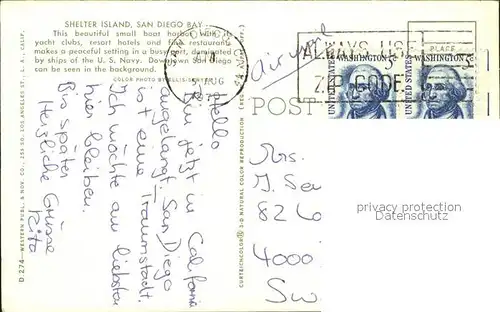 SHELTER ISLAND, SAN DIEGO BAY
This beautiful small boat harbor with
yacht clubs, resort hotels and fine restaurants
makes a peaceful setting in a busy port, dominated
by ships of the U. S. Navy. Downtown San Diego
can be seen in the background.
COLOR PHOTO BY
Hello
Bin jetzt in California
angelangt. San Diego
ist eine Traumstadt.
Ich möchte am liebsten
hier bleiben.
Bis später
Herzliche Grüsse
Rita
D 274 – WESTERN PUBL. & NOV. CO.,
L. A., CALIF.
CURTEICHCOLOR 3-D NATURAL COLOR REPRODUCTION
AUG
air mail
ALWAYS USE
CODE
PLACE
WASHINGTON 5c
UNITED STATES
WASHINGTON 5c
UNITED STATES
POST
Mrs.
826
4000
Sw
privacy protection
Datenschutz